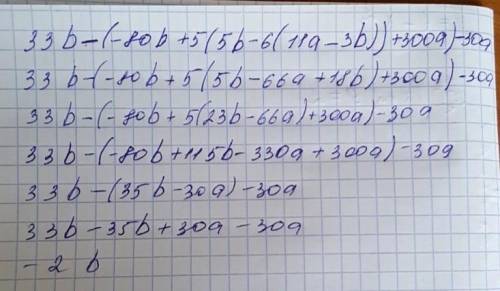 33b-(-80b+5(5b-6(11a-3b))+300a)-30a
33 b-(-80b+5(5b-66a+18b)+300a)-30a
33b-(-80b+5(23b-66a)+300a)-30a
33b-(-80b+115b-330a+300a)-30a
33b-(35b-30a)-30a
33b-35b+30a-30a
-2 b